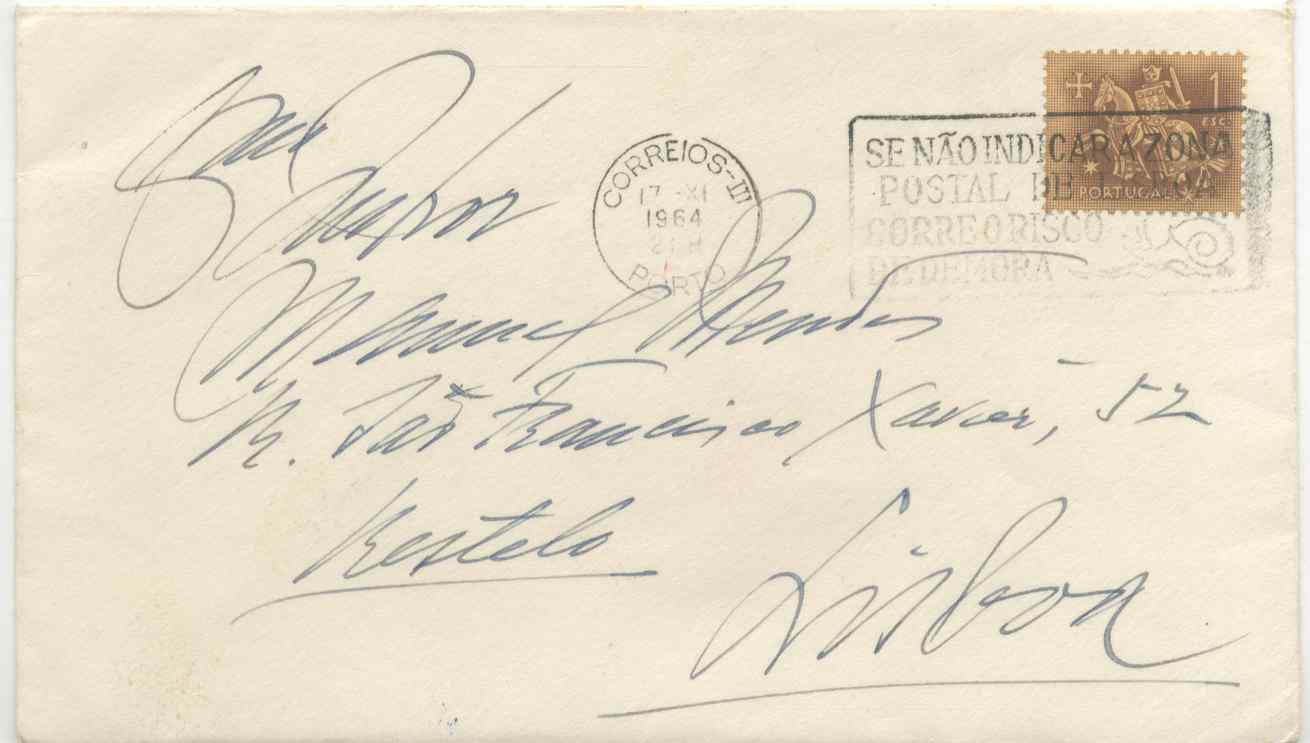 1
ESC.
PORTUGAL
CORREIOS-III
17 -XI
1964
21 H
PORTO
SE NÃO INDICAR A ZONA
POSTAL DE
CORRE O RISCO
DE DEMORA
Manuel Mendes
R. São Francisco Xavier, 52
Restelo
Lisboa